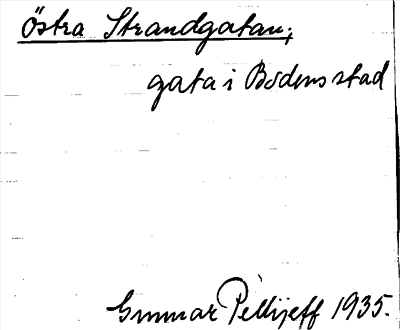 Östra Strandgatan;
gata i Bodens stad
Gunnar Pellijeff 1935.